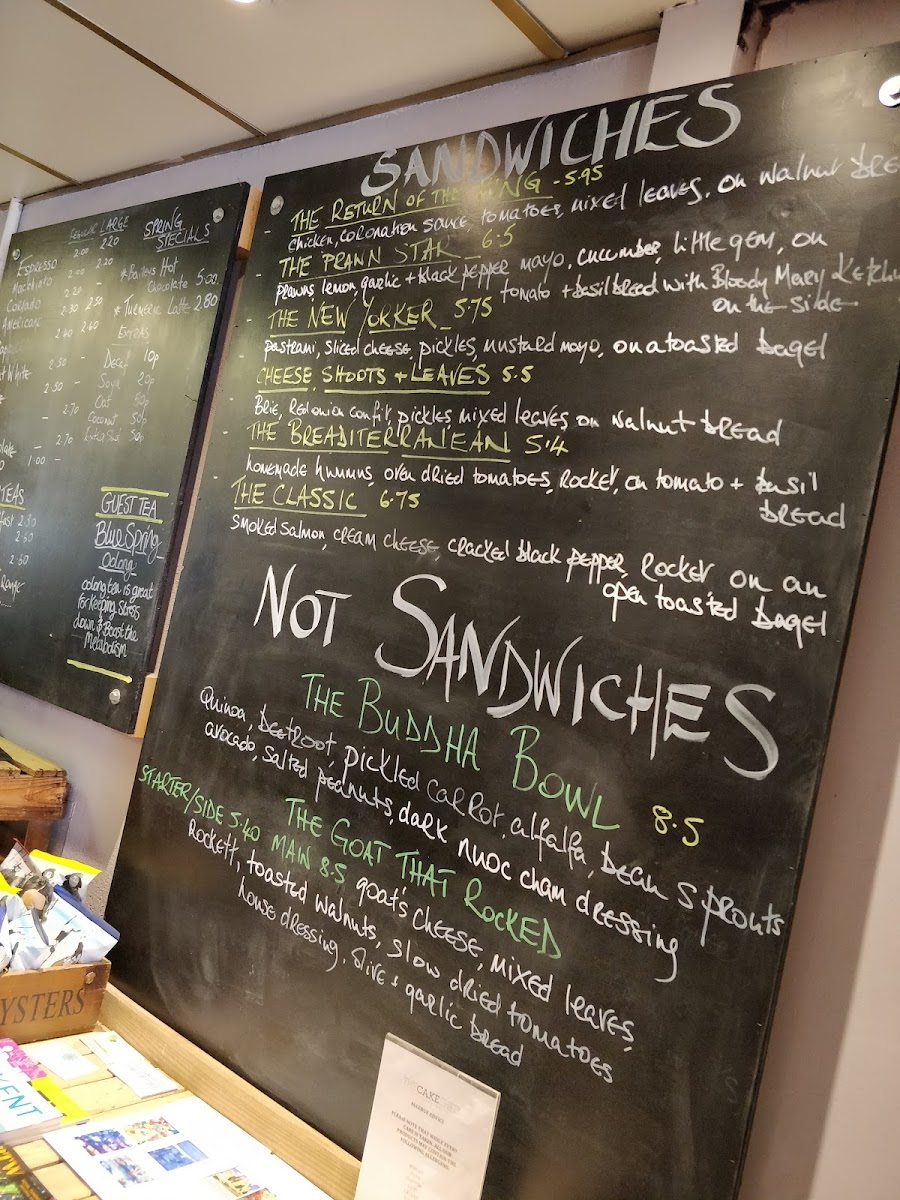 SANDWICHES
THE RETURN OF THE KING - 5.95
- chicken, coronation sauce, tomatoes, mixed leaves, on walnut
- THE PRAWN STAR - 6.5
prawns, lemon, garlic + black pepper mayo, cucumber, little gem, on
tomato + basil bread with Bloody Mary
on the side
- THE NEW YORKER - 5.75
pastrami, sliced cheese, pickles, mustard mayo, on a toasted bagel
- CHEESE, SHOOTS + LEAVES 5.5
Brie, Red onion confit, pickles, mixed leaves on walnut bread
- THE BREADITERRANEAN 5.4
homemade hummus, oven dried tomatoes, Rocket, on tomato + basil
bread
- THE CLASSIC 6.75
smoked salmon, cream cheese, cracked black pepper, Rocket on an
open toasted bagel
NOT SANDWICHES
THE BUDDHA BOWL 8.5
Quinoa, beetroot, pickled carrot, alfalfa, bean sprouts
avocado, salted peanuts, dark nuoc cham dressing
THE GOAT THAT ROCKED
STARTER/SIDE 5.40 MAIN 8.5 goat's cheese, mixed leaves,
Rockett, toasted walnuts, slow dried tomatoes
house dressing, olive + garlic bread
REGULAR LARGE
ESPRESSO 2.00 2.20
Macchiato 2.00 2.20
Cortado 2.20 -
Americano 2.30 2.50
2.40 2.60
White 2.50 -
2.50 -
- 2.70
- 2.70
1.00 -
TEAS
2.30
2.50
2.50
SPRING
SPECIALS
Hot
Chocolate 5.00
* Turmeric Latte 2.80
Extras
Decaf 10p
Soya 20p
Oat 50p
Coconut 50p
50p
GUEST TEA
Blue Spring
Oolong
oolong tea is great
for keeping stress
down & Boost the
Metabolism
OYSTERS
KENT
CAKE
ALLERGY ADVICE
PLEASE NOTE THAT WHILE EVERY
CARE IS TAKEN, ALL OUR
PRODUCTS MAY CONTAIN THE
FOLLOWING ALLERGENS: